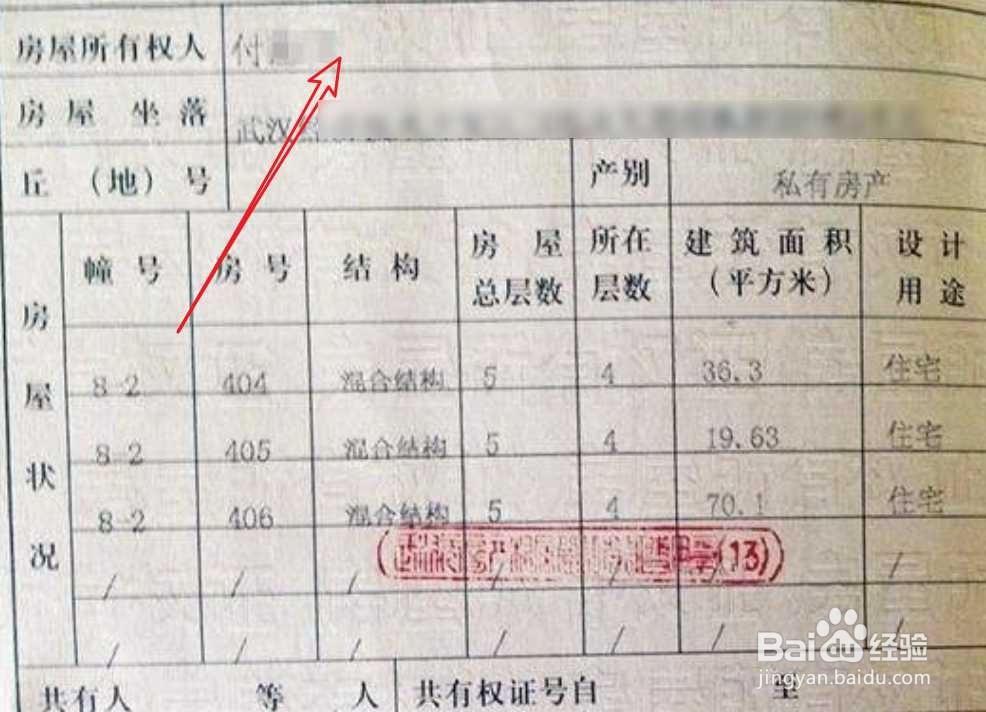 房屋所有权人 付
房屋坐落 武汉
丘（地）号 产别 私有房产
房屋状况 幢号 房号 结构 房屋总层数 所在层数 建筑面积（平方米） 设计用途
8-2 404 混合结构 5 4 36.3 住宅
8-2 405 混合结构 5 4 19.63 住宅
8-2 406 混合结构 5 4 70.1 住宅
(13)
/ / / / / / /
/ / / / / / /
共有人 等 人 共有权证号自 至
Baidu经验
jingyan.baidu.com